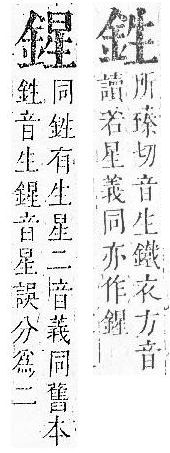 鉎
所臻切音生鐵衣方音
讀若星義同亦作鍟
鍟
同鉎有生星二音義同舊本
鉎音生鍟音星誤分爲二